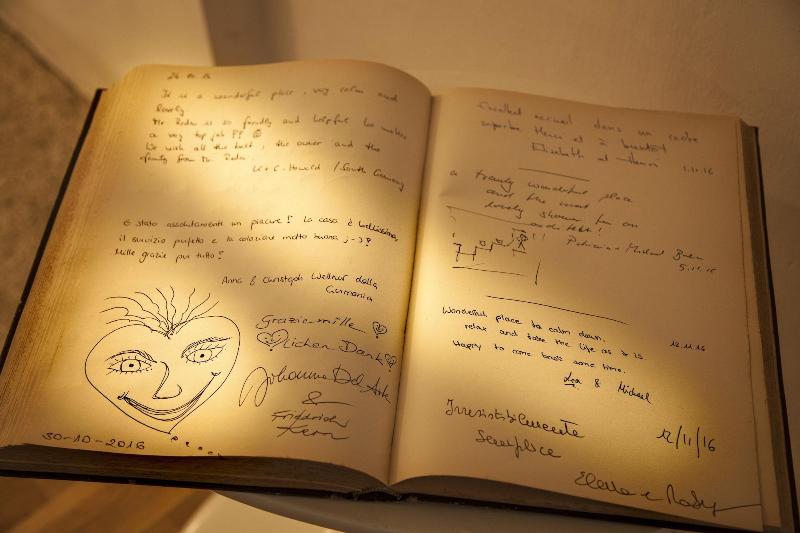 It is a wonderful place, very calm and
lovely
Mr Reda is so friendly and helpful he makes
a very top job!!! ☺
We wish all the best, the owner and the
family from Mr. Reda.
K + C. Howald / South Germany
È stato assolutamente un piacere! La casa è bellissima,
il servizio perfetto e la colazione molto buona ;-)?
Mille grazie per tutto!
Anna & Christoph Wellner dalla
Germania
Grazie mille
lichen Dank
Johanna
&
Friedrich
Kern
30-10-2016
Excellent accueil dans un cadre
superbe. Merci et à bientôt
Elisabeth et Henri
1.11.16
a truly wonderful place
and the most
lovely shower for an
architekt!
Patricia & Michael
5.11.16
Wonderful place to calm down,
relax and take the life as it is
Happy to come back some time.
12.11.16
Lea & Michael
Irresistibilmente
semplice
12/11/16
Elena e